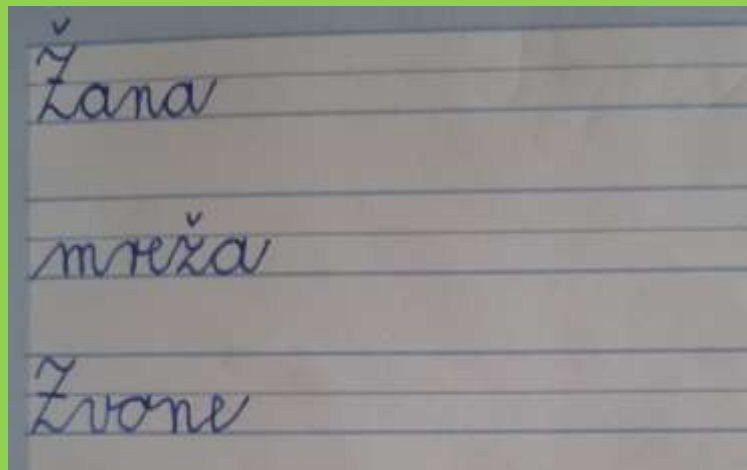 Žana
mreža
Zvone